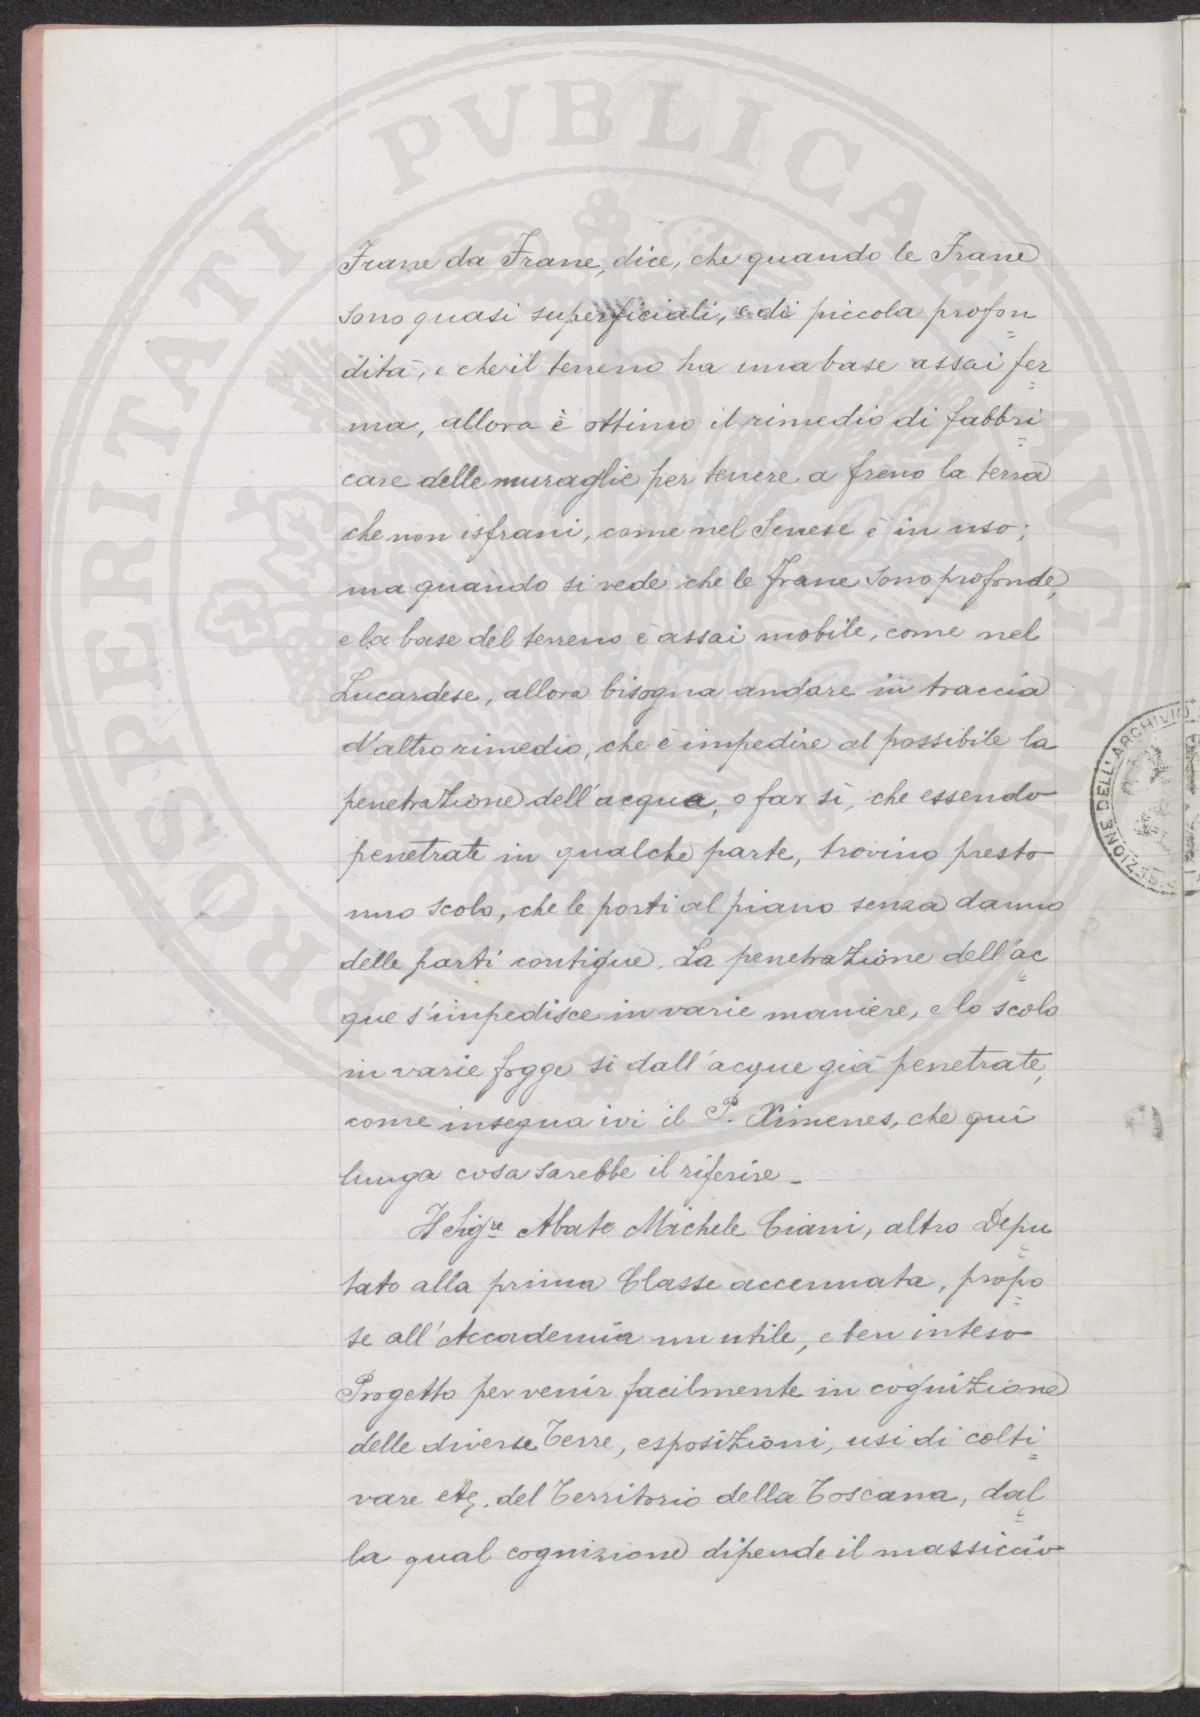 Frane da Frane, dice, che quando le Frane
sono quasi superficiali, e di piccola profon=
dità, e che il terreno ha una base assai fer=
ma, allora è ottimo il rimedio di fabbri=
care delle muraglie per tenere a freno la terra
che non isfrani, come nel Senese è in uso;
ma quando si vede che le frane sono profonde,
e la base del terreno è assai mobile, come nel
Lucardese, allora bisogna andare in traccia
d'altro rimedio, che è impedire al possibile la
penetrazione dell'acqua, o far sì, che essendo
penetrate in qualche parte, trovino presto
uno scolo, che le porti al piano senza danno
delle parti contigue. La penetrazione dell'ac=
que s'impedisce in varie maniere, e lo scolo
in varie fogge si dall'acque già penetrate,
come insegna ivi il P. Ximenes, che qui
lunga cosa sarebbe il riferire_
Il Sig.re Abate Michele Ciani, altro Depu=
tato alla prima Classe accennata, propo=
se all'Accademia un utile, e ben inteso
Progetto per venir facilmente in cognizione
delle diverse Terre, esposizioni, usi di colti=
vare etc. del Territorio della Toscana, dal=
la qual cognizione dipende il massiccio
PROSPERITATI PVBLICAE AVGENDAE
SEZIONE DELL'ARCHIVIO